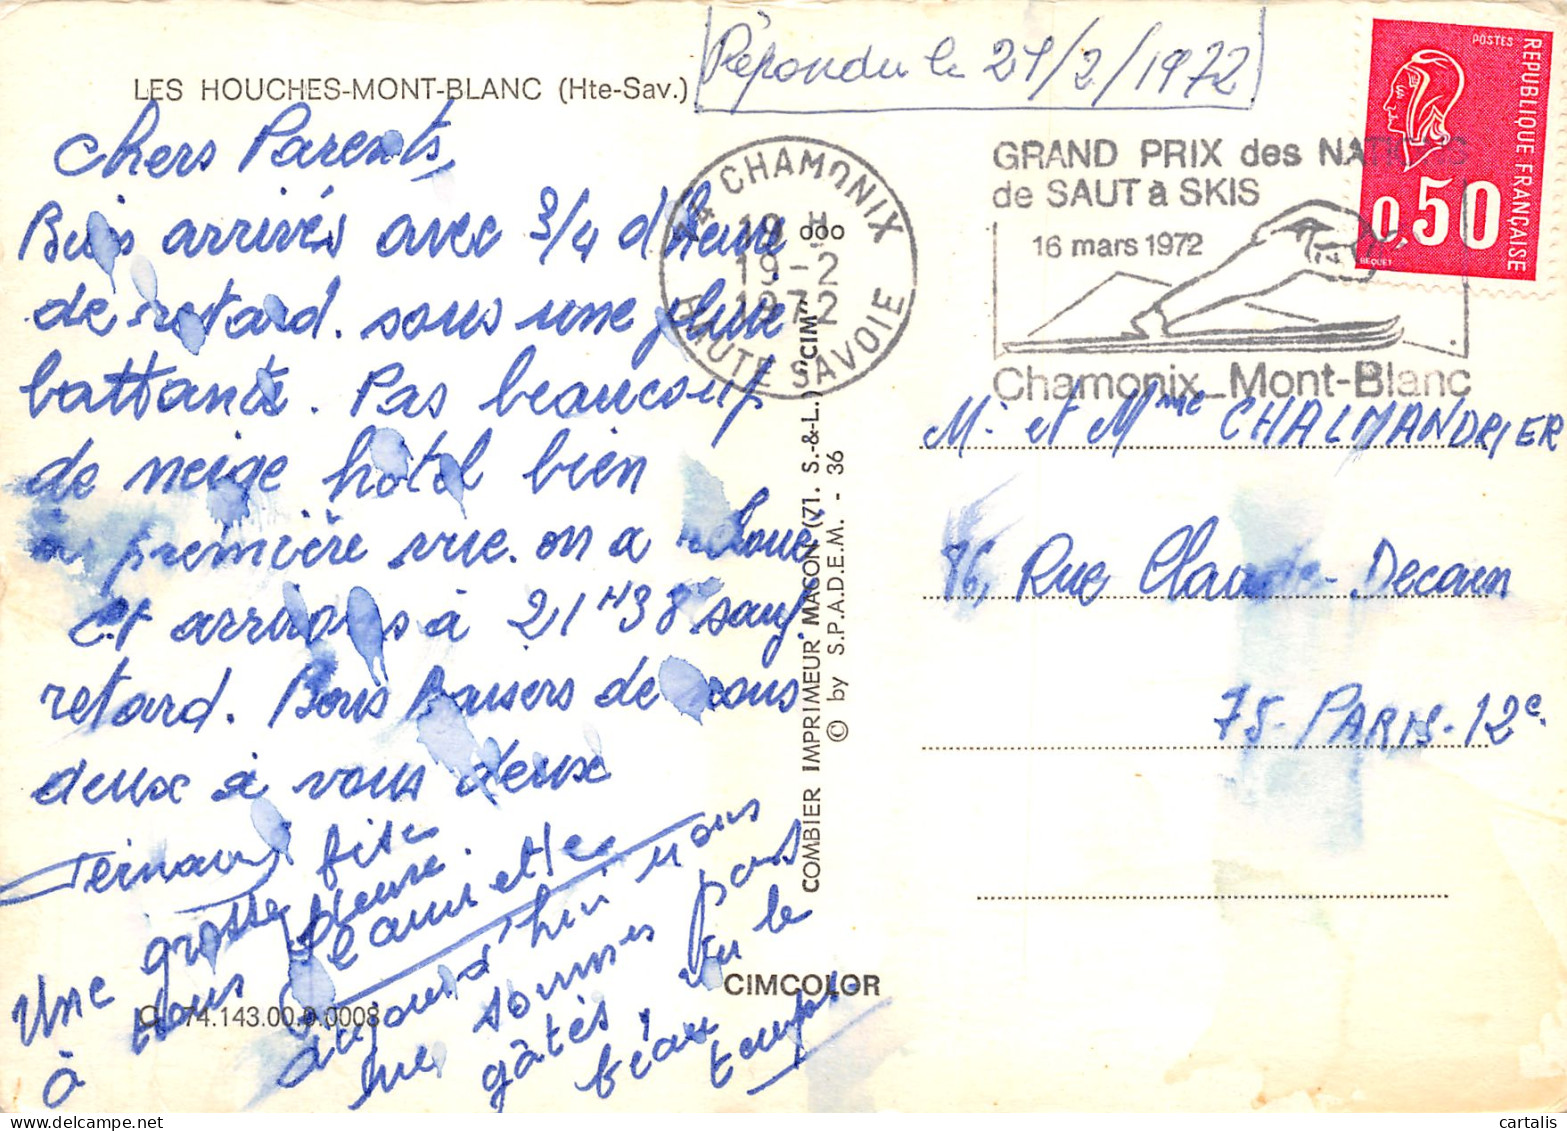 LES HOUCHES-MONT-BLANC (Hte-Sav.)
Répondu le 21/2/1972
Chers Parents,
Bien arrivés avec 3/4 d'heure
de retard. sous une pluie
battante. Pas beaucoup
de neige hôtel bien
première vue. on a
et arrivons à 21H38 sauf
retard. Bons Baisers de nous
deux à vous deux
Fernand
Une grosse bise
à vous deux.
Jeannette
aujourd'hui nous
ne sommes pas
gâtés, vu le
beau temps.
74 CHAMONIX
HAUTE SAVOIE
19 H
19-2
1972
GRAND PRIX des NATIONS
de SAUT à SKIS
16 mars 1972
Chamonix_Mont-Blanc
POSTES
REPUBLIQUE FRANÇAISE
0,50
BEQUET
M. et Mme CHALMANDRIER
76, Rue Claude-Decaen
75-PARIS-12e.
COMBIER IMPRIMEUR MACON (71. S.-&-L.) "CIM"
© by S.P.A.D.E.M. - 36
CIMCOLOR
C. 74.143.00.0.0008
cartalis